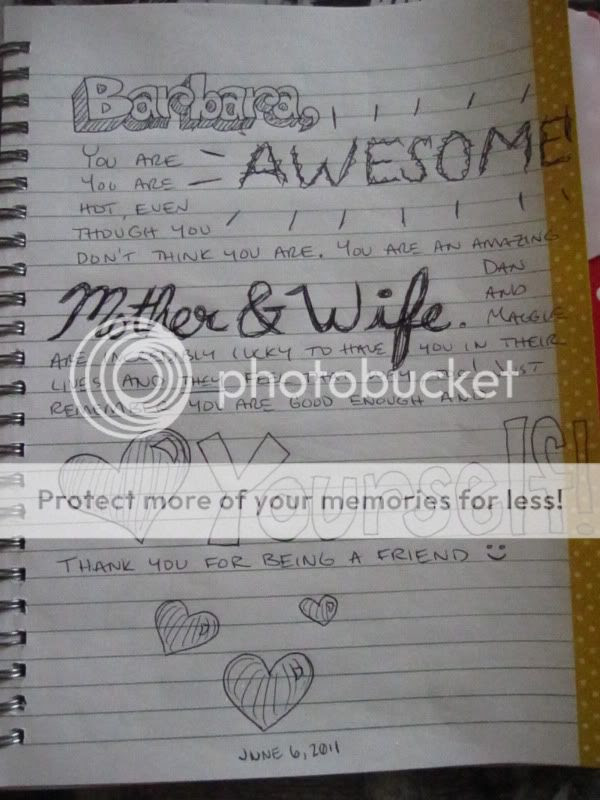 Barbara,
YOU ARE AWESOME
YOU ARE
HOT, EVEN
THOUGH YOU
DON'T THINK YOU ARE. YOU ARE AN AMAZING
Mother & Wife. DAN
AND
MAGGIE
ARE INCREDIBLY LUCKY TO HAVE YOU IN THEIR
LIVES AND THEY JUST
REMEMBER YOU ARE GOOD ENOUGH AND
photobucket
Yourself!
Protect more of your memories for less!
THANK YOU FOR BEING A FRIEND
JUNE 6, 2011